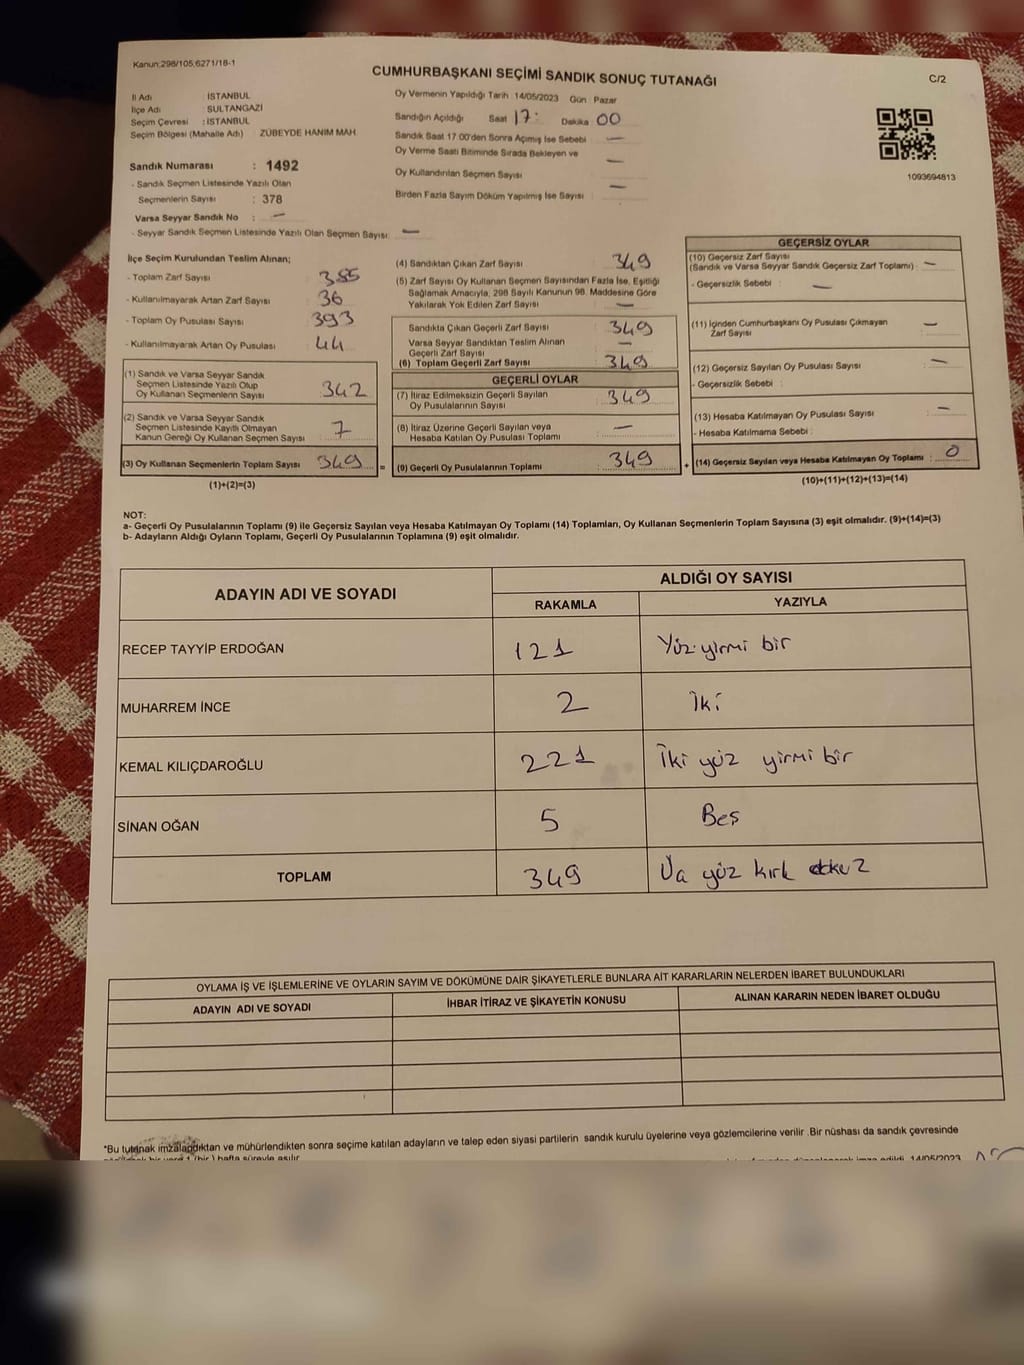 Kanun:298/105;6271/18-1
CUMHURBAŞKANI SEÇİMİ SANDIK SONUÇ TUTANAĞI
C/2
İl Adı : İSTANBUL
İlçe Adı : SULTANGAZİ
Seçim Çevresi : İSTANBUL
Seçim Bölgesi (Mahalle Adı) : ZÜBEYDE HANIM MAH.
Sandık Numarası : 1492
- Sandık Seçmen Listesinde Yazılı Olan
Seçmenlerin Sayısı : 378
Varsa Seyyar Sandık No : —
- Seyyar Sandık Seçmen Listesinde Yazılı Olan Seçmen Sayısı: —
Oy Vermenin Yapıldığı Tarih : 14/05/2023 Gün : Pazar
Sandığın Açıldığı Saat 17: Dakika : 00
Sandık Saat 17:00'den Sonra Açımış İse Sebebi : —
Oy Verme Saati Bitiminde Sırada Bekleyen ve
Oy Kullandırılan Seçmen Sayısı : —
Birden Fazla Sayım Döküm Yapılmış İse Sayısı : —
1093694813
İlçe Seçim Kurulundan Teslim Alınan;
- Toplam Zarf Sayısı : 385
- Kullanılmayarak Artan Zarf Sayısı : 36
- Toplam Oy Pusulası Sayısı : 393
- Kullanılmayarak Artan Oy Pusulası : 44
(1) Sandık ve Varsa Seyyar Sandık
Seçmen Listesinde Yazılı Olup
Oy Kullanan Seçmenlerin Sayısı : 342
(2) Sandık ve Varsa Seyyar Sandık
Seçmen Listesinde Kayıtlı Olmayan
Kanun Gereği Oy Kullanan Seçmen Sayısı : 7
(3) Oy Kullanan Seçmenlerin Toplam Sayısı : 349
(1)+(2)=(3)
(4) Sandıktan Çıkan Zarf Sayısı : 349
(5) Zarf Sayısı Oy Kullanan Seçmen Sayısından Fazla İse, Eşitliği
Sağlamak Amacıyla, 298 Sayılı Kanunun 98. Maddesine Göre
Yakılarak Yok Edilen Zarf Sayısı : —
Sandıkta Çıkan Geçerli Zarf Sayısı : 349
Varsa Seyyar Sandıktan Teslim Alınan
Geçerli Zarf Sayısı : —
(6) Toplam Geçerli Zarf Sayısı : 349
GEÇERLİ OYLAR
(7) İtiraz Edilmeksizin Geçerli Sayılan
Oy Pusulalarının Sayısı : 349
(8) İtiraz Üzerine Geçerli Sayılan veya
Hesaba Katılan Oy Pusulası Toplamı : —
(9) Geçerli Oy Pusulalarının Toplamı : 349
GEÇERSİZ OYLAR
(10) Geçersiz Zarf Sayısı
(Sandık ve Varsa Seyyar Sandık Geçersiz Zarf Toplamı) : —
- Geçersizlik Sebebi : —
(11) İçinden Cumhurbaşkanı Oy Pusulası Çıkmayan
Zarf Sayısı : —
(12) Geçersiz Sayılan Oy Pusulası Sayısı : —
- Geçersizlik Sebebi :
(13) Hesaba Katılmayan Oy Pusulası Sayısı : —
- Hesaba Katılmama Sebebi :
(14) Geçersiz Sayılan veya Hesaba Katılmayan Oy Toplamı : 0
(10)+(11)+(12)+(13)=(14)
NOT:
a- Geçerli Oy Pusulalarının Toplamı (9) ile Geçersiz Sayılan veya Hesaba Katılmayan Oy Toplamı (14) Toplamları, Oy Kullanan Seçmenlerin Toplam Sayısına (3) eşit olmalıdır. (9)+(14)=(3)
b- Adayların Aldığı Oyların Toplamı, Geçerli Oy Pusulalarının Toplamına (9) eşit olmalıdır.
ADAYIN ADI VE SOYADI
ALDIĞI OY SAYISI
RAKAMLA YAZIYLA
RECEP TAYYİP ERDOĞAN 121 Yüz yirmi bir
MUHARREM İNCE 2 İki
KEMAL KILIÇDAROĞLU 221 İki yüz yirmi bir
SİNAN OĞAN 5 Beş
TOPLAM 349 yüz kırk
OYLAMA İŞ VE İŞLEMLERİNE VE OYLARIN SAYIM VE DÖKÜMÜNE DAİR ŞİKAYETLERLE BUNLARA AİT KARARLARIN NELERDEN İBARET BULUNDUKLARI
ADAYIN ADI VE SOYADI İHBAR İTİRAZ VE ŞİKAYETİN KONUSU ALINAN KARARIN NEDEN İBARET OLDUĞU
*Bu tutanak imzalandıktan ve mühürlendikten sonra seçime katılan adayların ve talep eden siyasi partilerin sandık kurulu üyelerine veya gözlemcilerine verilir .Bir nüshası da sandık çevresinde
14/05/2023